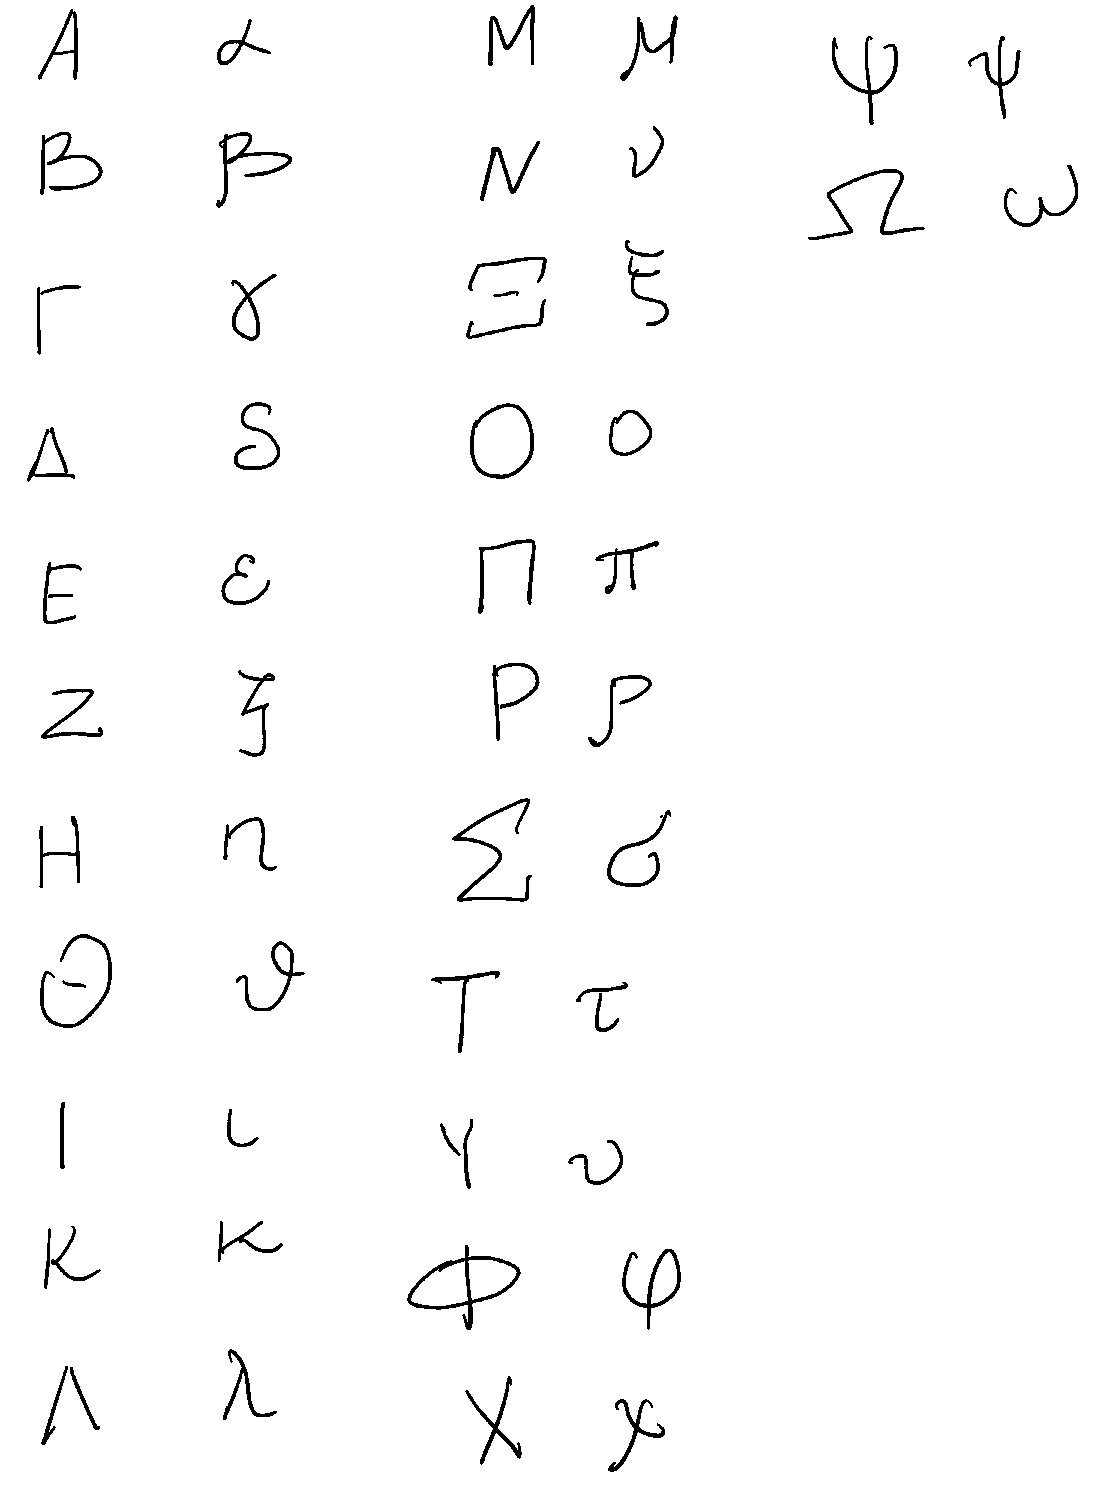 Α α
Β β
Γ γ
Δ δ
Ε ε
Ζ ζ
Η η
Θ ϑ
Ι ι
Κ κ
Λ λ
Μ μ
Ν ν
Ξ ξ
Ο ο
Π π
Ρ ρ
Σ σ
Τ τ
Υ υ
Φ φ
Χ χ
Ψ ψ
Ω ω